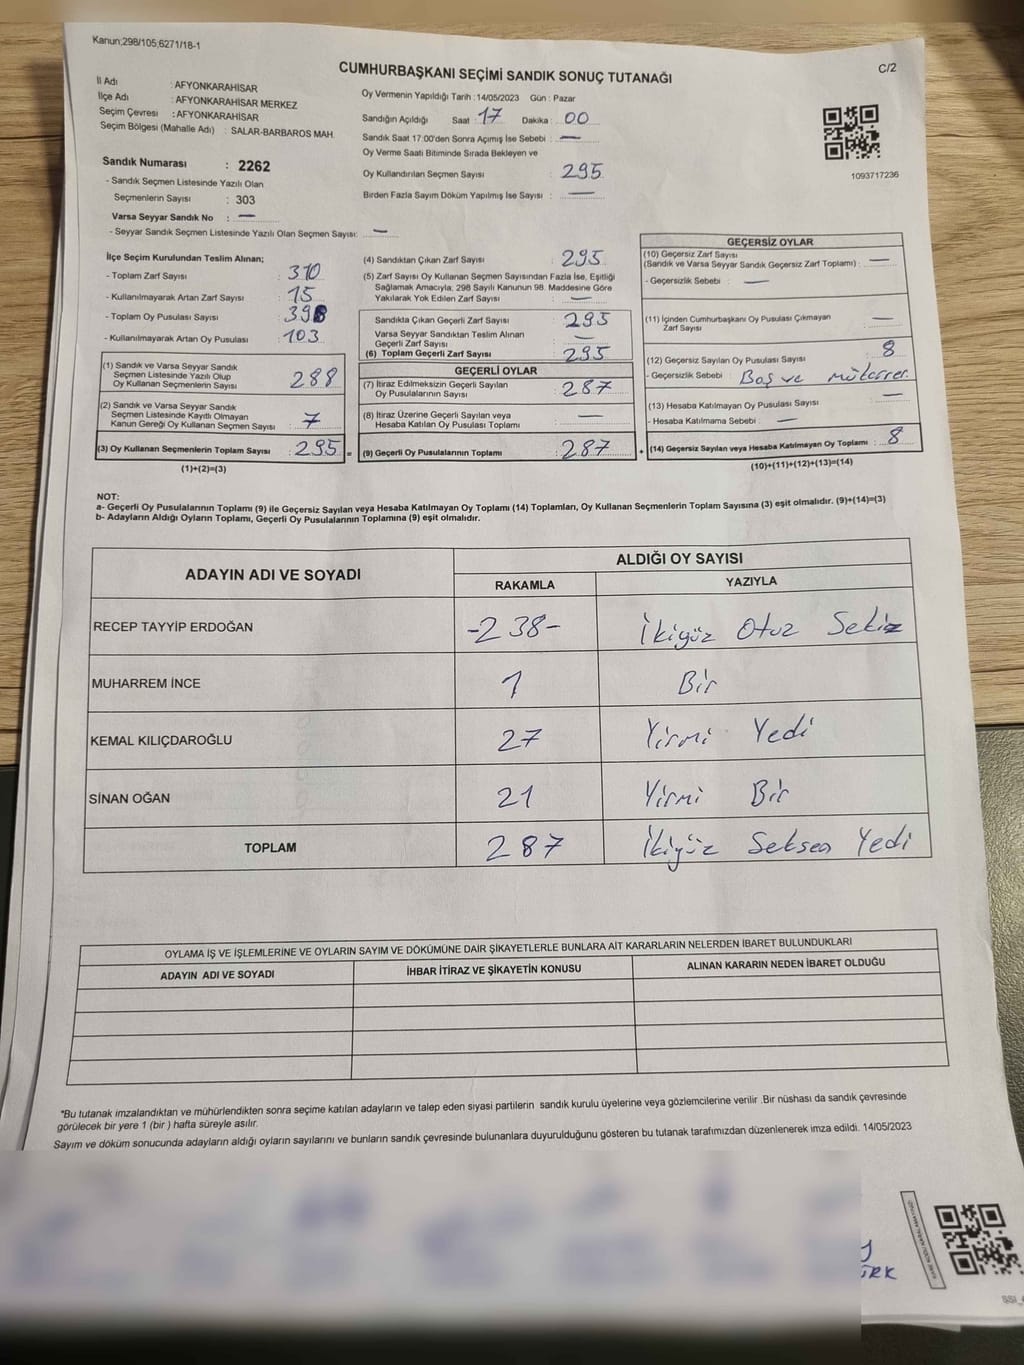 Kanun;298/105;6271/18-1
CUMHURBAŞKANI SEÇİMİ SANDIK SONUÇ TUTANAĞI
C/2
İl Adı : AFYONKARAHİSAR
İlçe Adı : AFYONKARAHİSAR MERKEZ
Seçim Çevresi : AFYONKARAHİSAR
Seçim Bölgesi (Mahalle Adı) : SALAR-BARBAROS MAH.
Sandık Numarası : 2262
- Sandık Seçmen Listesinde Yazılı Olan
Seçmenlerin Sayısı : 303
Varsa Seyyar Sandık No : —
- Seyyar Sandık Seçmen Listesinde Yazılı Olan Seçmen Sayısı: —
Oy Vermenin Yapıldığı Tarih : 14/05/2023 Gün : Pazar
Sandığın Açıldığı Saat : 17 Dakika : 00
Sandık Saat 17:00'den Sonra Açımış İse Sebebi : —
Oy Verme Saati Bitiminde Sırada Bekleyen ve
Oy Kullandırılan Seçmen Sayısı : 295
Birden Fazla Sayım Döküm Yapılmış İse Sayısı : —
1093717236
İlçe Seçim Kurulundan Teslim Alınan;
- Toplam Zarf Sayısı : 310
- Kullanılmayarak Artan Zarf Sayısı : 15
- Toplam Oy Pusulası Sayısı : 398
- Kullanılmayarak Artan Oy Pusulası : 103
(1) Sandık ve Varsa Seyyar Sandık
Seçmen Listesinde Yazılı Olup
Oy Kullanan Seçmenlerin Sayısı : 288
(2) Sandık ve Varsa Seyyar Sandık
Seçmen Listesinde Kayıtlı Olmayan
Kanun Gereği Oy Kullanan Seçmen Sayısı : 7
(3) Oy Kullanan Seçmenlerin Toplam Sayısı : 295 =
(1)+(2)=(3)
(4) Sandıktan Çıkan Zarf Sayısı : 295
(5) Zarf Sayısı Oy Kullanan Seçmen Sayısından Fazla İse, Eşitliği
Sağlamak Amacıyla; 298 Sayılı Kanunun 98. Maddesine Göre
Yakılarak Yok Edilen Zarf Sayısı : —
Sandıkta Çıkan Geçerli Zarf Sayısı : 295
Varsa Seyyar Sandıktan Teslim Alınan
Geçerli Zarf Sayısı : —
(6) Toplam Geçerli Zarf Sayısı : 295
GEÇERLİ OYLAR
(7) İtiraz Edilmeksizin Geçerli Sayılan
Oy Pusulalarının Sayısı : 287
(8) İtiraz Üzerine Geçerli Sayılan veya
Hesaba Katılan Oy Pusulası Toplamı : —
(9) Geçerli Oy Pusulalarının Toplamı : 287 +
GEÇERSİZ OYLAR
(10) Geçersiz Zarf Sayısı
(Sandık ve Varsa Seyyar Sandık Geçersiz Zarf Toplamı) : —
- Geçersizlik Sebebi : —
(11) İçinden Cumhurbaşkanı Oy Pusulası Çıkmayan
Zarf Sayısı : —
(12) Geçersiz Sayılan Oy Pusulası Sayısı : 8
- Geçersizlik Sebebi : Boş ve mükerrer.
(13) Hesaba Katılmayan Oy Pusulası Sayısı : —
- Hesaba Katılmama Sebebi : —
(14) Geçersiz Sayılan veya Hesaba Katılmayan Oy Toplamı : 8
(10)+(11)+(12)+(13)=(14)
NOT:
a- Geçerli Oy Pusulalarının Toplamı (9) ile Geçersiz Sayılan veya Hesaba Katılmayan Oy Toplamı (14) Toplamları, Oy Kullanan Seçmenlerin Toplam Sayısına (3) eşit olmalıdır. (9)+(14)=(3)
b- Adayların Aldığı Oyların Toplamı, Geçerli Oy Pusulalarının Toplamına (9) eşit olmalıdır.
ADAYIN ADI VE SOYADI
ALDIĞI OY SAYISI
RAKAMLA YAZIYLA
RECEP TAYYİP ERDOĞAN -238- İkiyüz Otuz Sekiz
MUHARREM İNCE 1 Bir
KEMAL KILIÇDAROĞLU 27 Yirmi Yedi
SİNAN OĞAN 21 Yirmi Bir
TOPLAM 287 İkiyüz Seksen Yedi
OYLAMA İŞ VE İŞLEMLERİNE VE OYLARIN SAYIM VE DÖKÜMÜNE DAİR ŞİKAYETLERLE BUNLARA AİT KARARLARIN NELERDEN İBARET BULUNDUKLARI
ADAYIN ADI VE SOYADI İHBAR İTİRAZ VE ŞİKAYETİN KONUSU ALINAN KARARIN NEDEN İBARET OLDUĞU
*Bu tutanak imzalandıktan ve mühürlendikten sonra seçime katılan adayların ve talep eden siyasi partilerin sandık kurulu üyelerine veya gözlemcilerine verilir .Bir nüshası da sandık çevresinde
görülecek bir yere 1 (bir ) hafta süreyle asılır.
Sayım ve döküm sonucunda adayların aldığı oyların sayılarını ve bunların sandık çevresinde bulunanlara duyurulduğunu gösteren bu tutanak tarafımızdan düzenlenerek imza edildi. 14/05/2023